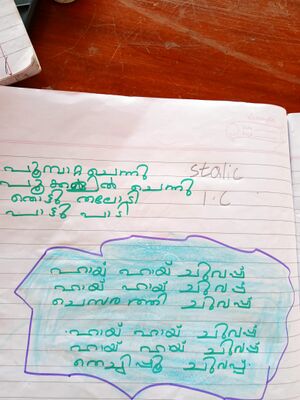 പൂമ്പാറ്റ ചെന്നു
പൂക്കളിൽ ചെന്നു
തൊട്ടു തലോടി
പാട്ടു പാടി
static
I.C
ഹായ് ഹായ് ചുവപ്പ്
ഹായ് ഹായ് ചുവപ്പ്
ചെമ്പരത്തി ചുവപ്പ്
ഹായ് ഹായ് ചുവപ്പ്
ഹായ് ഹായ് ചുവപ്പ്
തെച്ചിപ്പൂ ചുവപ്പ്